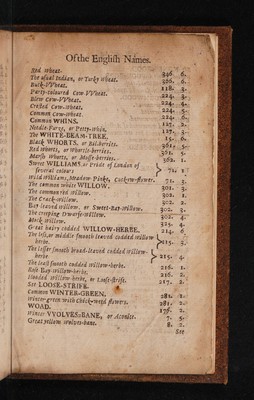 Of the English Names.
Red Wheat. 346. 6.
The usual Indian, or Turky wheat. 366. 6.
Buck-VVheat. 118. 3.
Party-coloured Cow-VVheat. 224. 3.
Blew Cow-VVheat. 224.
Crested Cow-wheat. 224.
Common Cow-wheat. 224. 6.
Common WHINS. 127. 2.
Needle-Furze, or Petty-whin. 127. 3.
The WHITE-BEAM-TREE. 15.
Black WHORTS, or Bil-berries. 361.
Red whorts, or Whortle-berries. 361. 2.
Marsh Whorts, or Mosse-berries. 362. 1.
Sweet WILLIAMS, or Pride of London of
several colours 72. 1.
Wild Williams, Meadow-Pinks, Cuckow-flower. 71. 2.
The common white WILLOW. 301. 2.
The common red Willow. 301.
The Crack-willow. 302.
Bay leaved willow, or Sweet-Bay-willow. 302. 3.
The creeping Dwarse-willow. 302.
Rock Willow. 325. 4.
Great hairy codded WILLOW-HERBE. 214. 6.
The less, or middle smooth leaved codded willow-
herbe 215. 3.
The lesser smooth broad-leaved codded willow-
herbe 215. 4.
The least smooth codded willow-herbe. 216. 1.
Rose Bay-willow-herbe 216. 2.
Hooded willow-herbe, or Loose-strife. 217. 2.
See LOOSE-STRIFE.
Common WINTER-GREEN. 281. 1.
Winter-green with Chick-weed flowers. 281. 2.
WOAD. 176. 2.
Winter VVOLVES-BANE, or Aconite. 7. 5.
Great yellow wolves-bane. 8. 2.
See